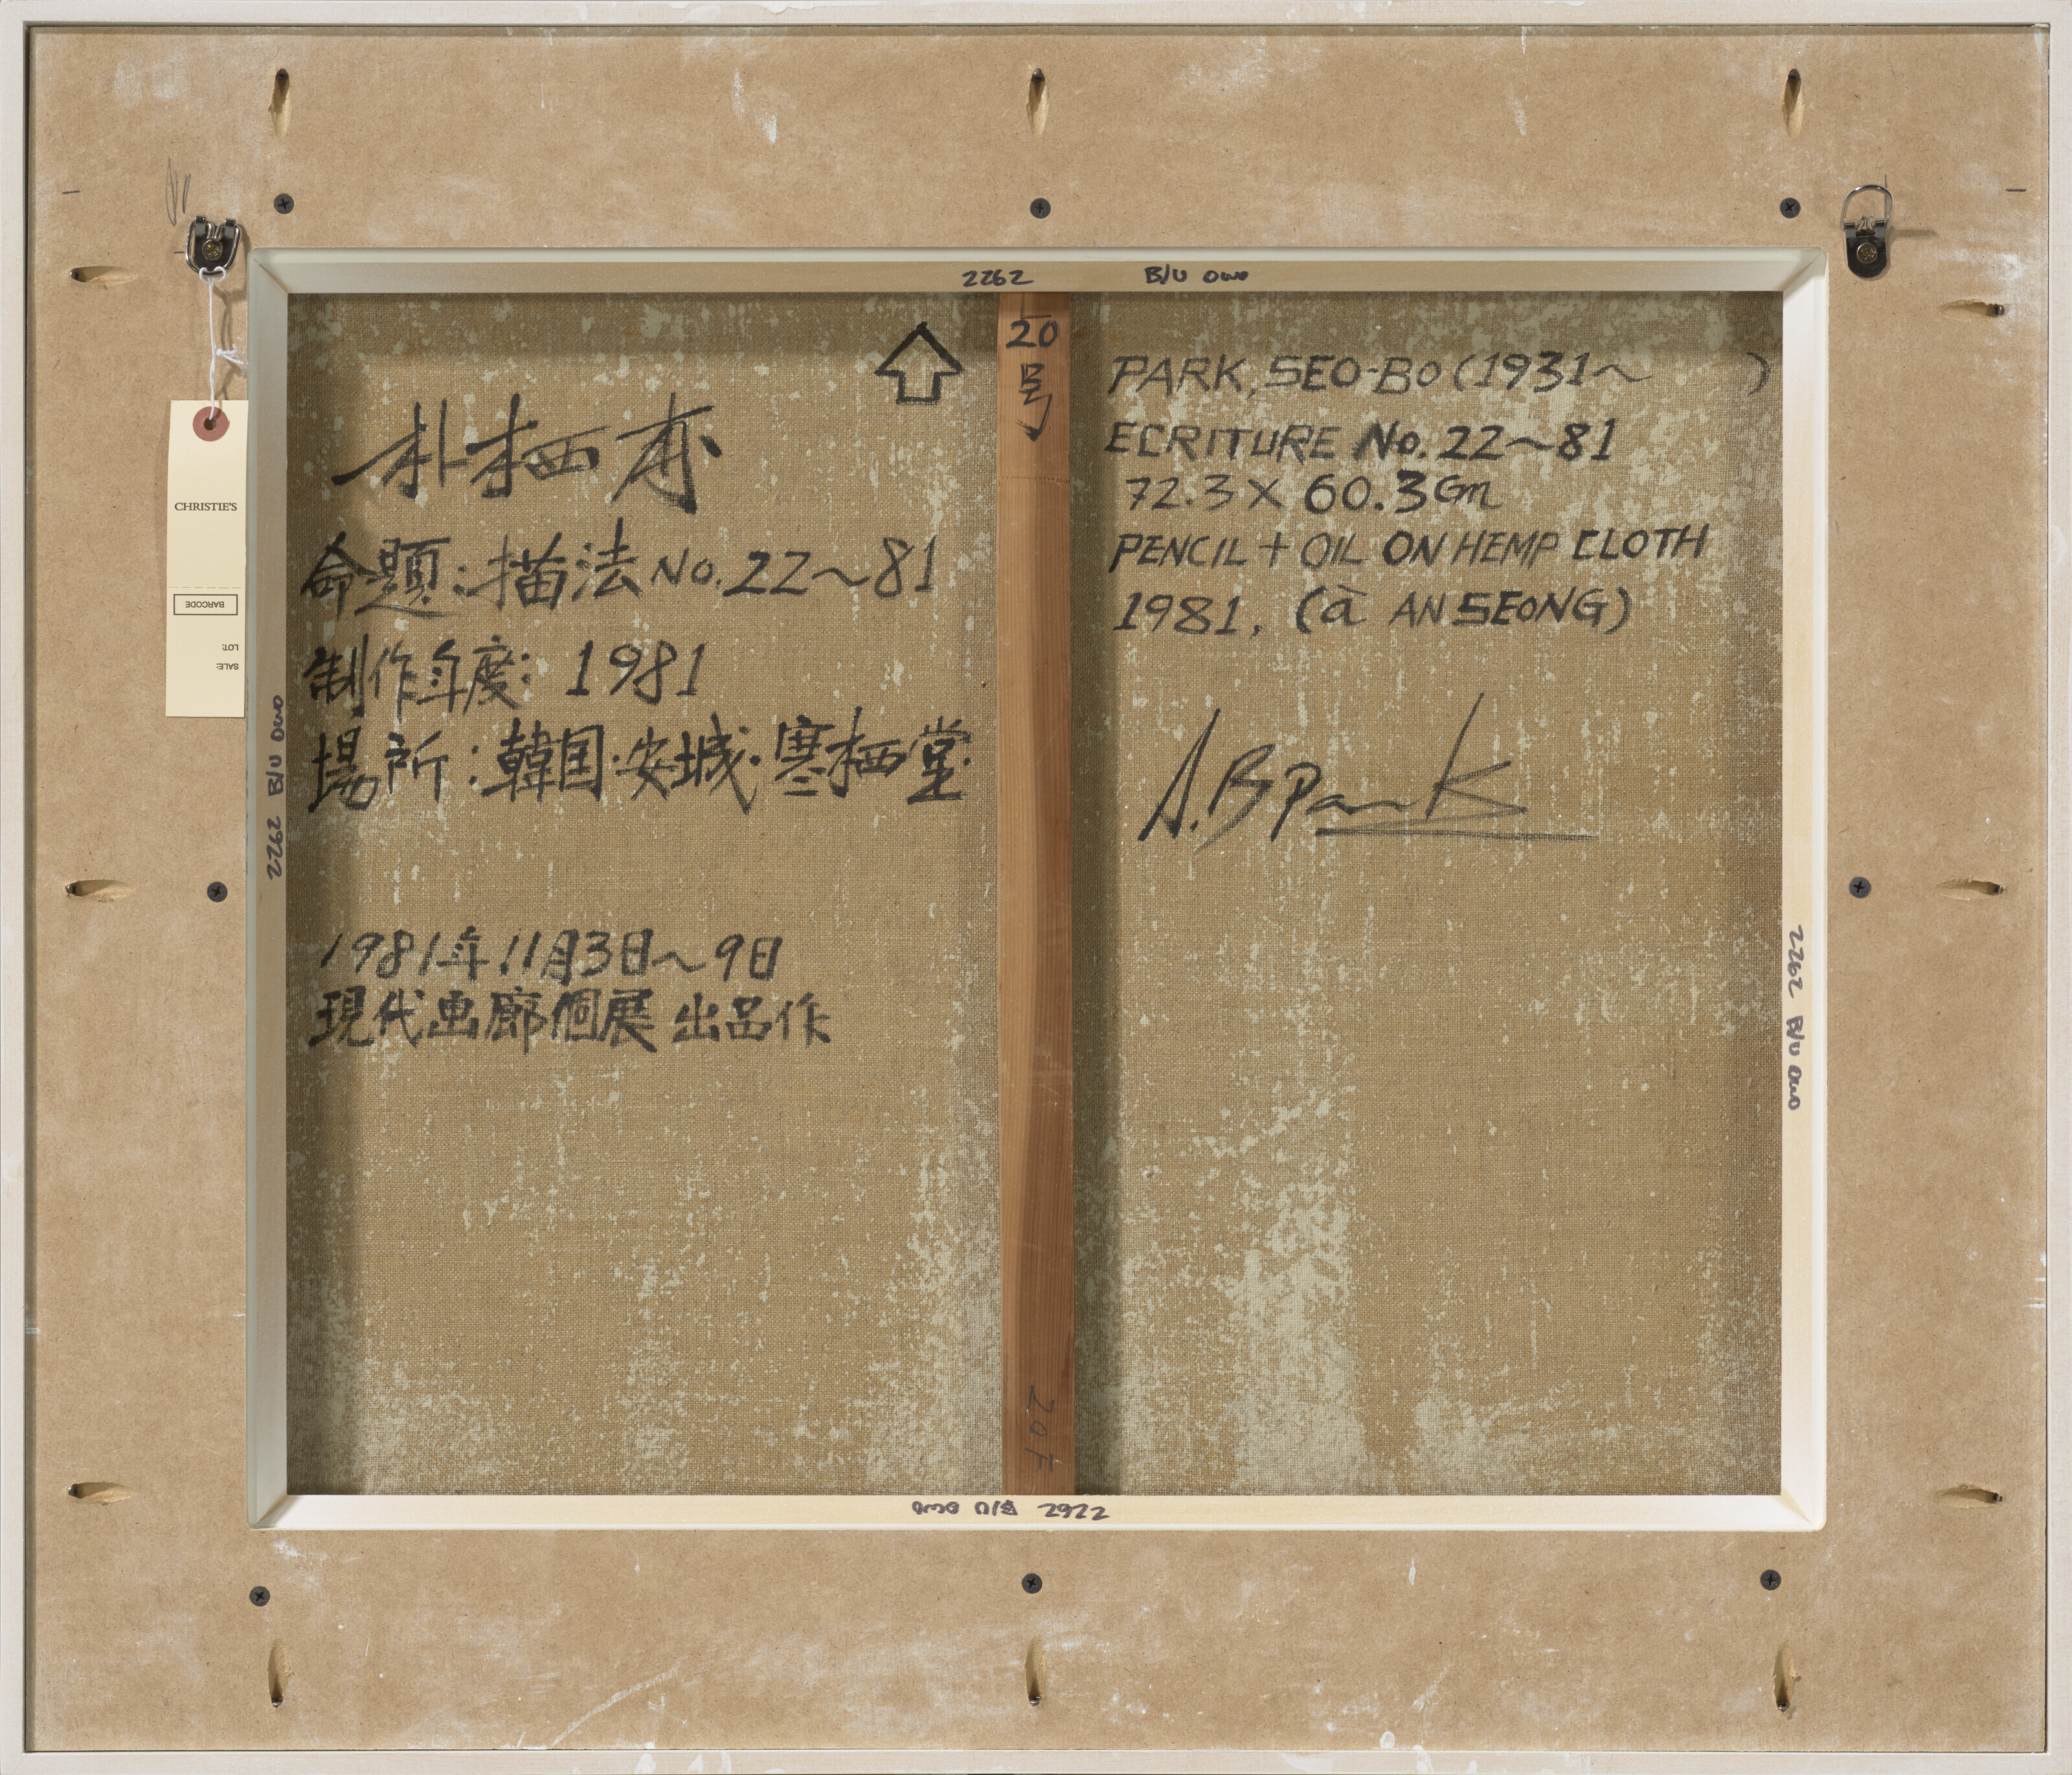 2262 B/U OWO
20
号
朴栖甫
命題:描法 No.22~81
制作年度: 1981
場所:韓国·安城·寒栖堂·
1981年11月3日~9日
現代画廊個展 出品作
PARK, SEO-BO (1931~ )
ECRITURE No. 22~81
72.3 X 60.3 Cm
PENCIL + OIL ON HEMP CLOTH
1981, (à ANSEONG)
S.B Park
CHRISTIE'S
BARCODE
LOT:
SALE:
2262 B/U OWO
2262 B/U OWO
20F
2262 B/U OWO